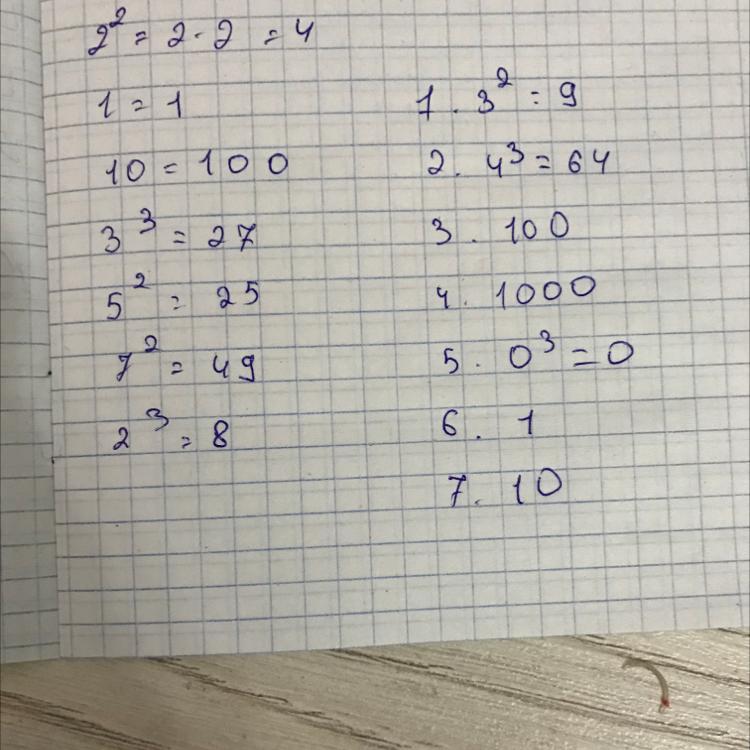 2² = 2 · 2 = 4
1 = 1
10 = 100
3³ = 27
5² = 25
7² = 49
2³ = 8
1. 3² = 9
2. 4³ = 64
3. 100
4. 1000
5. 0³ = 0
6. 1
7. 10